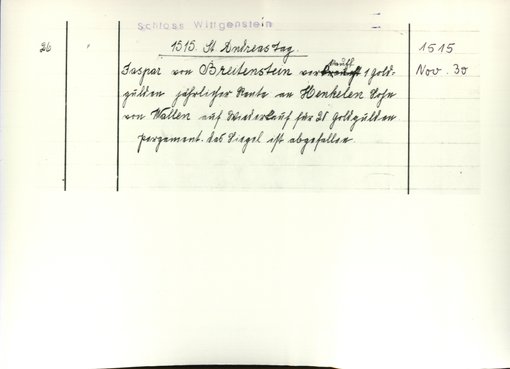 Schloss Wittgenstein
26
1515. St. Andreastag.
1515
Nov. 30
Jaspar von Breitenstein verkauft 1 Gold-
gulden jährlicher Rente an Henkelen Sohn
von Wallen auf Wiederkauf für 20 Goldgulden
Pergament. das Siegel ist abgefallen.